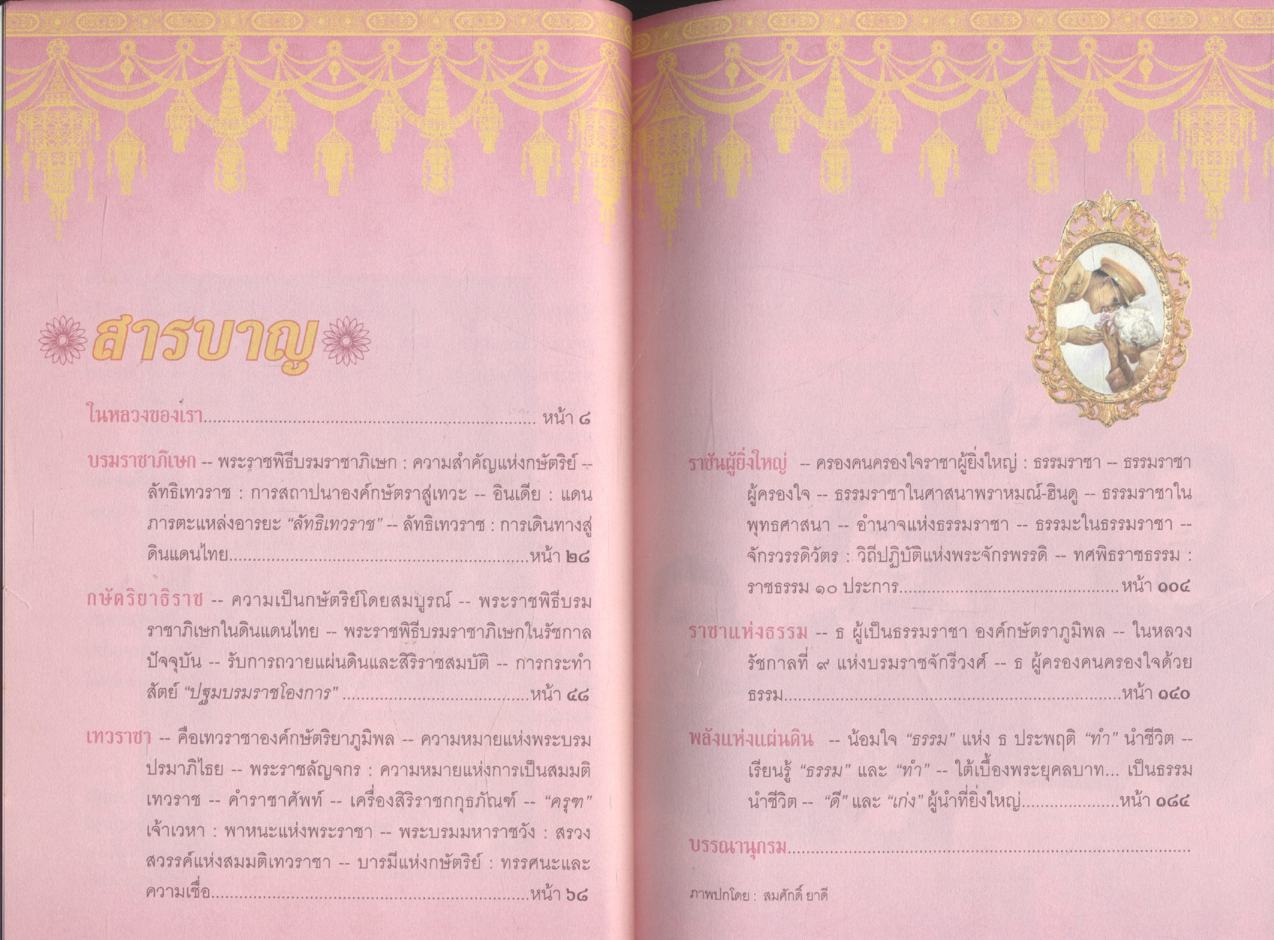 สารบาญ
ในหลวงของเรา.................................................................... หน้า ๘
บรมราชาภิเษก -- พระราชพิธีบรมราชาภิเษก : ความสำคัญแห่งกษัตริย์ --
ลัทธิเทวราช : การสถาปนาองค์กษัตราสู่เทวะ -- อินเดีย : แดน
ภารตะแหล่งอารยะ “ลัทธิเทวราช” -- ลัทธิเทวราช : การเดินทางสู่
ดินแดนไทย.............................................................หน้า ๒๘
กษัตริยาธิราช -- ความเป็นกษัตริย์โดยสมบูรณ์ -- พระราชพิธีบรม
ราชาภิเษกในดินแดนไทย -- พระราชพิธีบรมราชาภิเษกในรัชกาล
ปัจจุบัน -- รับการถวายแผ่นดินและสิริราชสมบัติ -- การกระทำ
สัตย์ “ปฐมบรมราชโองการ” ......................................หน้า ๔๘
เทวราชา -- คือเทวราชาองค์กษัตริยาภูมิพล -- ความหมายแห่งพระบรม
ปรมาภิไธย -- พระราชลัญจกร : ความหมายแห่งการเป็นสมมติ
เทวราช -- คำราชาศัพท์ -- เครื่องสิริราชกกุธภัณฑ์ -- “ครุฑ”
เจ้าเวหา : พาหนะแห่งพระราชา -- พระบรมมหาราชวัง : สรวง
สวรรค์แห่งสมมติเทวราชา -- บารมีแห่งกษัตริย์ : ทรรศนะและ
ความเชื่อ.................................................................หน้า ๖๘
ราชันผู้ยิ่งใหญ่ -- ครองคนครองใจราชาผู้ยิ่งใหญ่ : ธรรมราชา -- ธรรมราชา
ผู้ครองใจ -- ธรรมราชาในศาสนาพราหมณ์-ฮินดู -- ธรรมราชาใน
พุทธศาสนา -- อำนาจแห่งธรรมราชา -- ธรรมะในธรรมราชา --
จักรวรรดิวัตร : วิถีปฏิบัติแห่งพระจักรพรรดิ -- ทศพิธราชธรรม :
ราชธรรม ๑๐ ประการ.............................................หน้า ๑๐๔
ราชาแห่งธรรม -- ธ ผู้เป็นธรรมราชา องค์กษัตราภูมิพล -- ในหลวง
รัชกาลที่ ๙ แห่งบรมราชจักรีวงศ์ -- ธ ผู้ครองคนครองใจด้วย
ธรรม.....................................................................หน้า ๑๔๐
พลังแห่งแผ่นดิน -- น้อมใจ “ธรรม” แห่ง ธ ประพฤติ “ทำ” นำชีวิต --
เรียนรู้ “ธรรม” และ “ทำ” -- ใต้เบื้องพระยุคลบาท... เป็นธรรม
นำชีวิต -- “ดี” และ “เก่ง” ผู้นำที่ยิ่งใหญ่....................หน้า ๑๘๔
บรรณานุกรม..................................................................................
ภาพปกโดย : สมศักดิ์ ยาดี